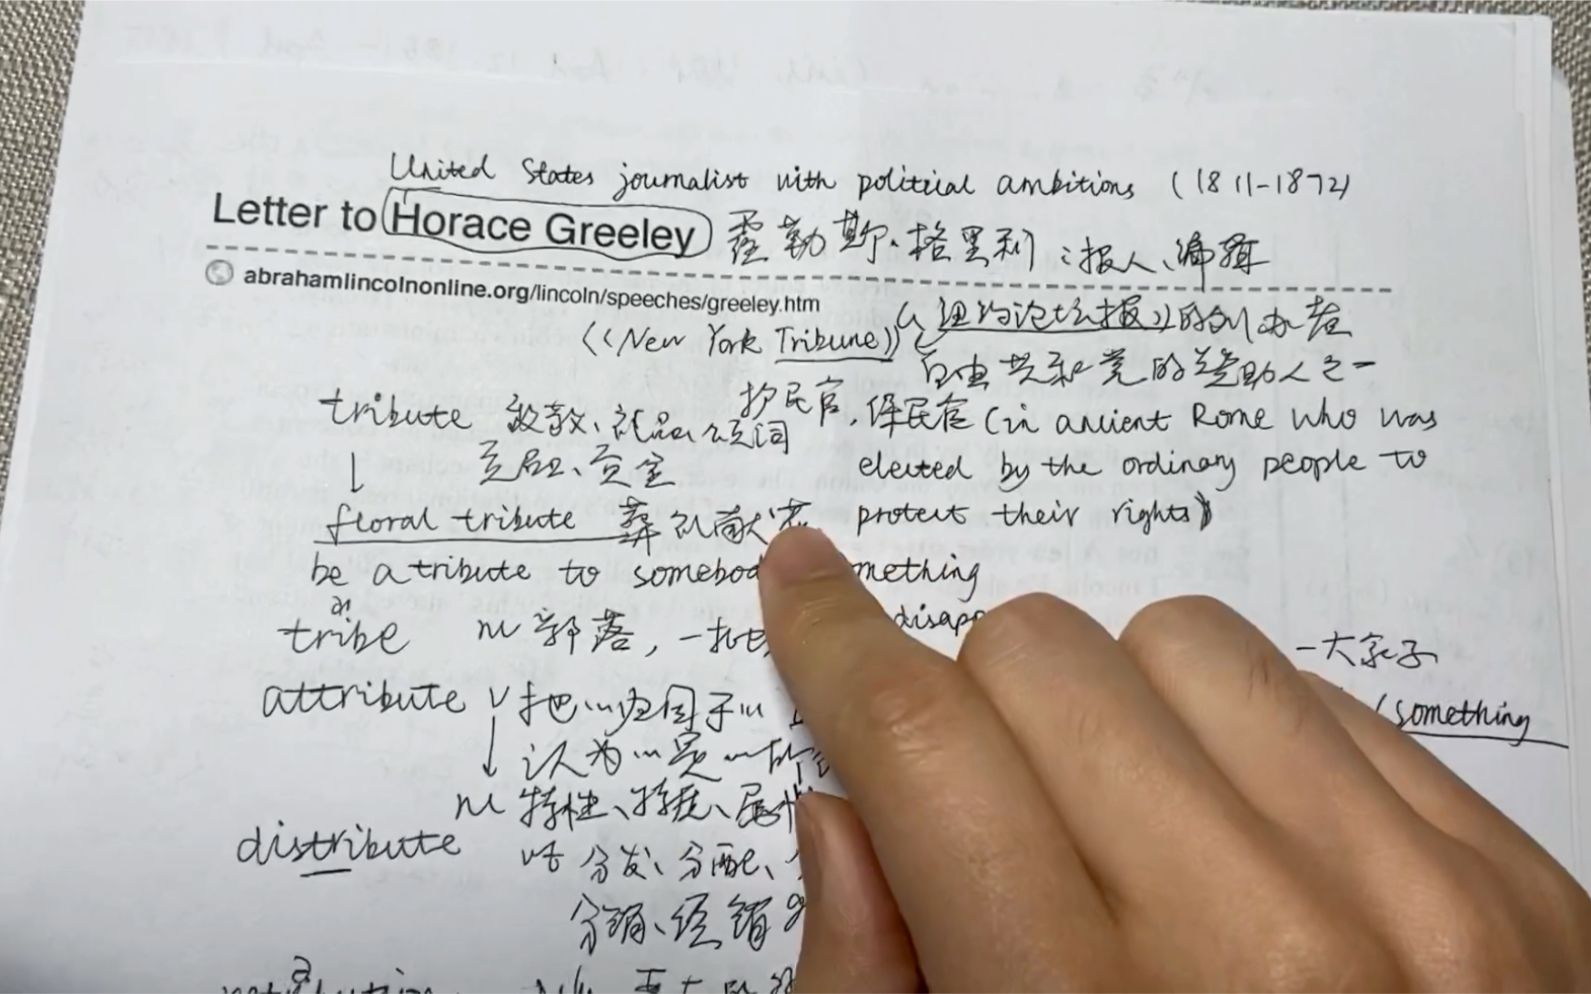 United States journalist with political ambitions (1811-1872)
Letter to Horace Greeley 霍勒斯·格里利：报人、编辑
abrahamlincolnonline.org/lincoln/speeches/greeley.htm
《New York Tribune》《纽约论坛报》的创办者
自由共和党的赞助人之一
tribute 致敬、礼品、颂词 护民官，保民官 (in ancient Rome who was
elected by the ordinary people to
floral tribute 葬礼献花 protect their rights)
be a tribute to something
tribe n 部落，一大家子
attribute v 把…归因于…
something
认为…是…
n 特性、特质、属性
distribute vt 分发、分配、
分销、经销